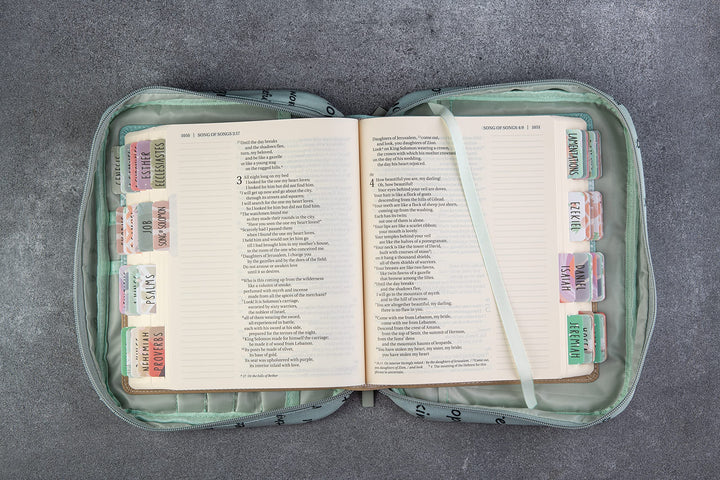 1050 | SONG OF SONGS 2:17
17 Until the day breaks
and the shadows flee,
turn, my beloved,
and be like a gazelle
or like a young stag
on the rugged hills.
3 All night long on my bed
I looked for the one my heart loves;
I looked for him but did not find him.
2 I will get up now and go about the city,
through its streets and squares;
I will search for the one my heart loves.
So I looked for him but did not find him.
3 The watchmen found me
as they made their rounds in the city.
"Have you seen the one my heart loves?"
4 Scarcely had I passed them
when I found the one my heart loves.
I held him and would not let him go
till I had brought him to my mother's house,
to the room of the one who conceived me.
5 Daughters of Jerusalem, I charge you
by the gazelles and by the does of the field:
Do not arouse or awaken love
until it so desires.
6 Who is this coming up from the wilderness
like a column of smoke,
perfumed with myrrh and incense
made from all the spices of the merchant?
7 Look! It is Solomon's carriage,
escorted by sixty warriors,
the noblest of Israel,
8 all of them wearing the sword,
all experienced in battle,
each with his sword at his side,
prepared for the terrors of the night.
9 King Solomon made for himself the carriage;
he made it of wood from Lebanon.
10 Its posts he made of silver,
its base of gold.
Its seat was upholstered with purple,
its interior inlaid with love.
SONG OF SONGS 4:9 | 1051
Daughters of Jerusalem, 11 come out,
and look, you daughters of Zion.
Look on King Solomon wearing a crown,
the crown with which his mother crowned
on the day of his wedding,
the day his heart rejoiced.
4 How beautiful you are, my darling!
Oh, how beautiful!
Your eyes behind your veil are doves.
Your hair is like a flock of goats
descending from the hills of Gilead.
2 Your teeth are like a flock of sheep just shorn,
coming up from the washing.
Each has its twin;
not one of them is alone.
3 Your lips are like a scarlet ribbon;
your mouth is lovely.
Your temples behind your veil
are like the halves of a pomegranate.
4 Your neck is like the tower of David,
built with courses of stone;
on it hang a thousand shields,
all of them shields of warriors.
5 Your breasts are like two fawns,
like twin fawns of a gazelle
that browse among the lilies.
6 Until the day breaks
and the shadows flee,
I will go to the mountain of myrrh
and to the hill of incense.
7 You are altogether beautiful, my darling;
there is no flaw in you.
8 Come with me from Lebanon, my bride,
come with me from Lebanon.
Descend from the crest of Amana,
from the top of Senir, the summit of Hermon,
from the lions' dens
and the mountain haunts of leopards.
9 You have stolen my heart, my sister, my bride;
you have stolen my heart
ESTHER
ECCLESIASTES
JOB
SONG OF SOLOMON
PSALMS
NEHEMIAH
PROVERBS
LAMENTATIONS
EZEKIEL
ISAIAH
DANIEL
JEREMIAH